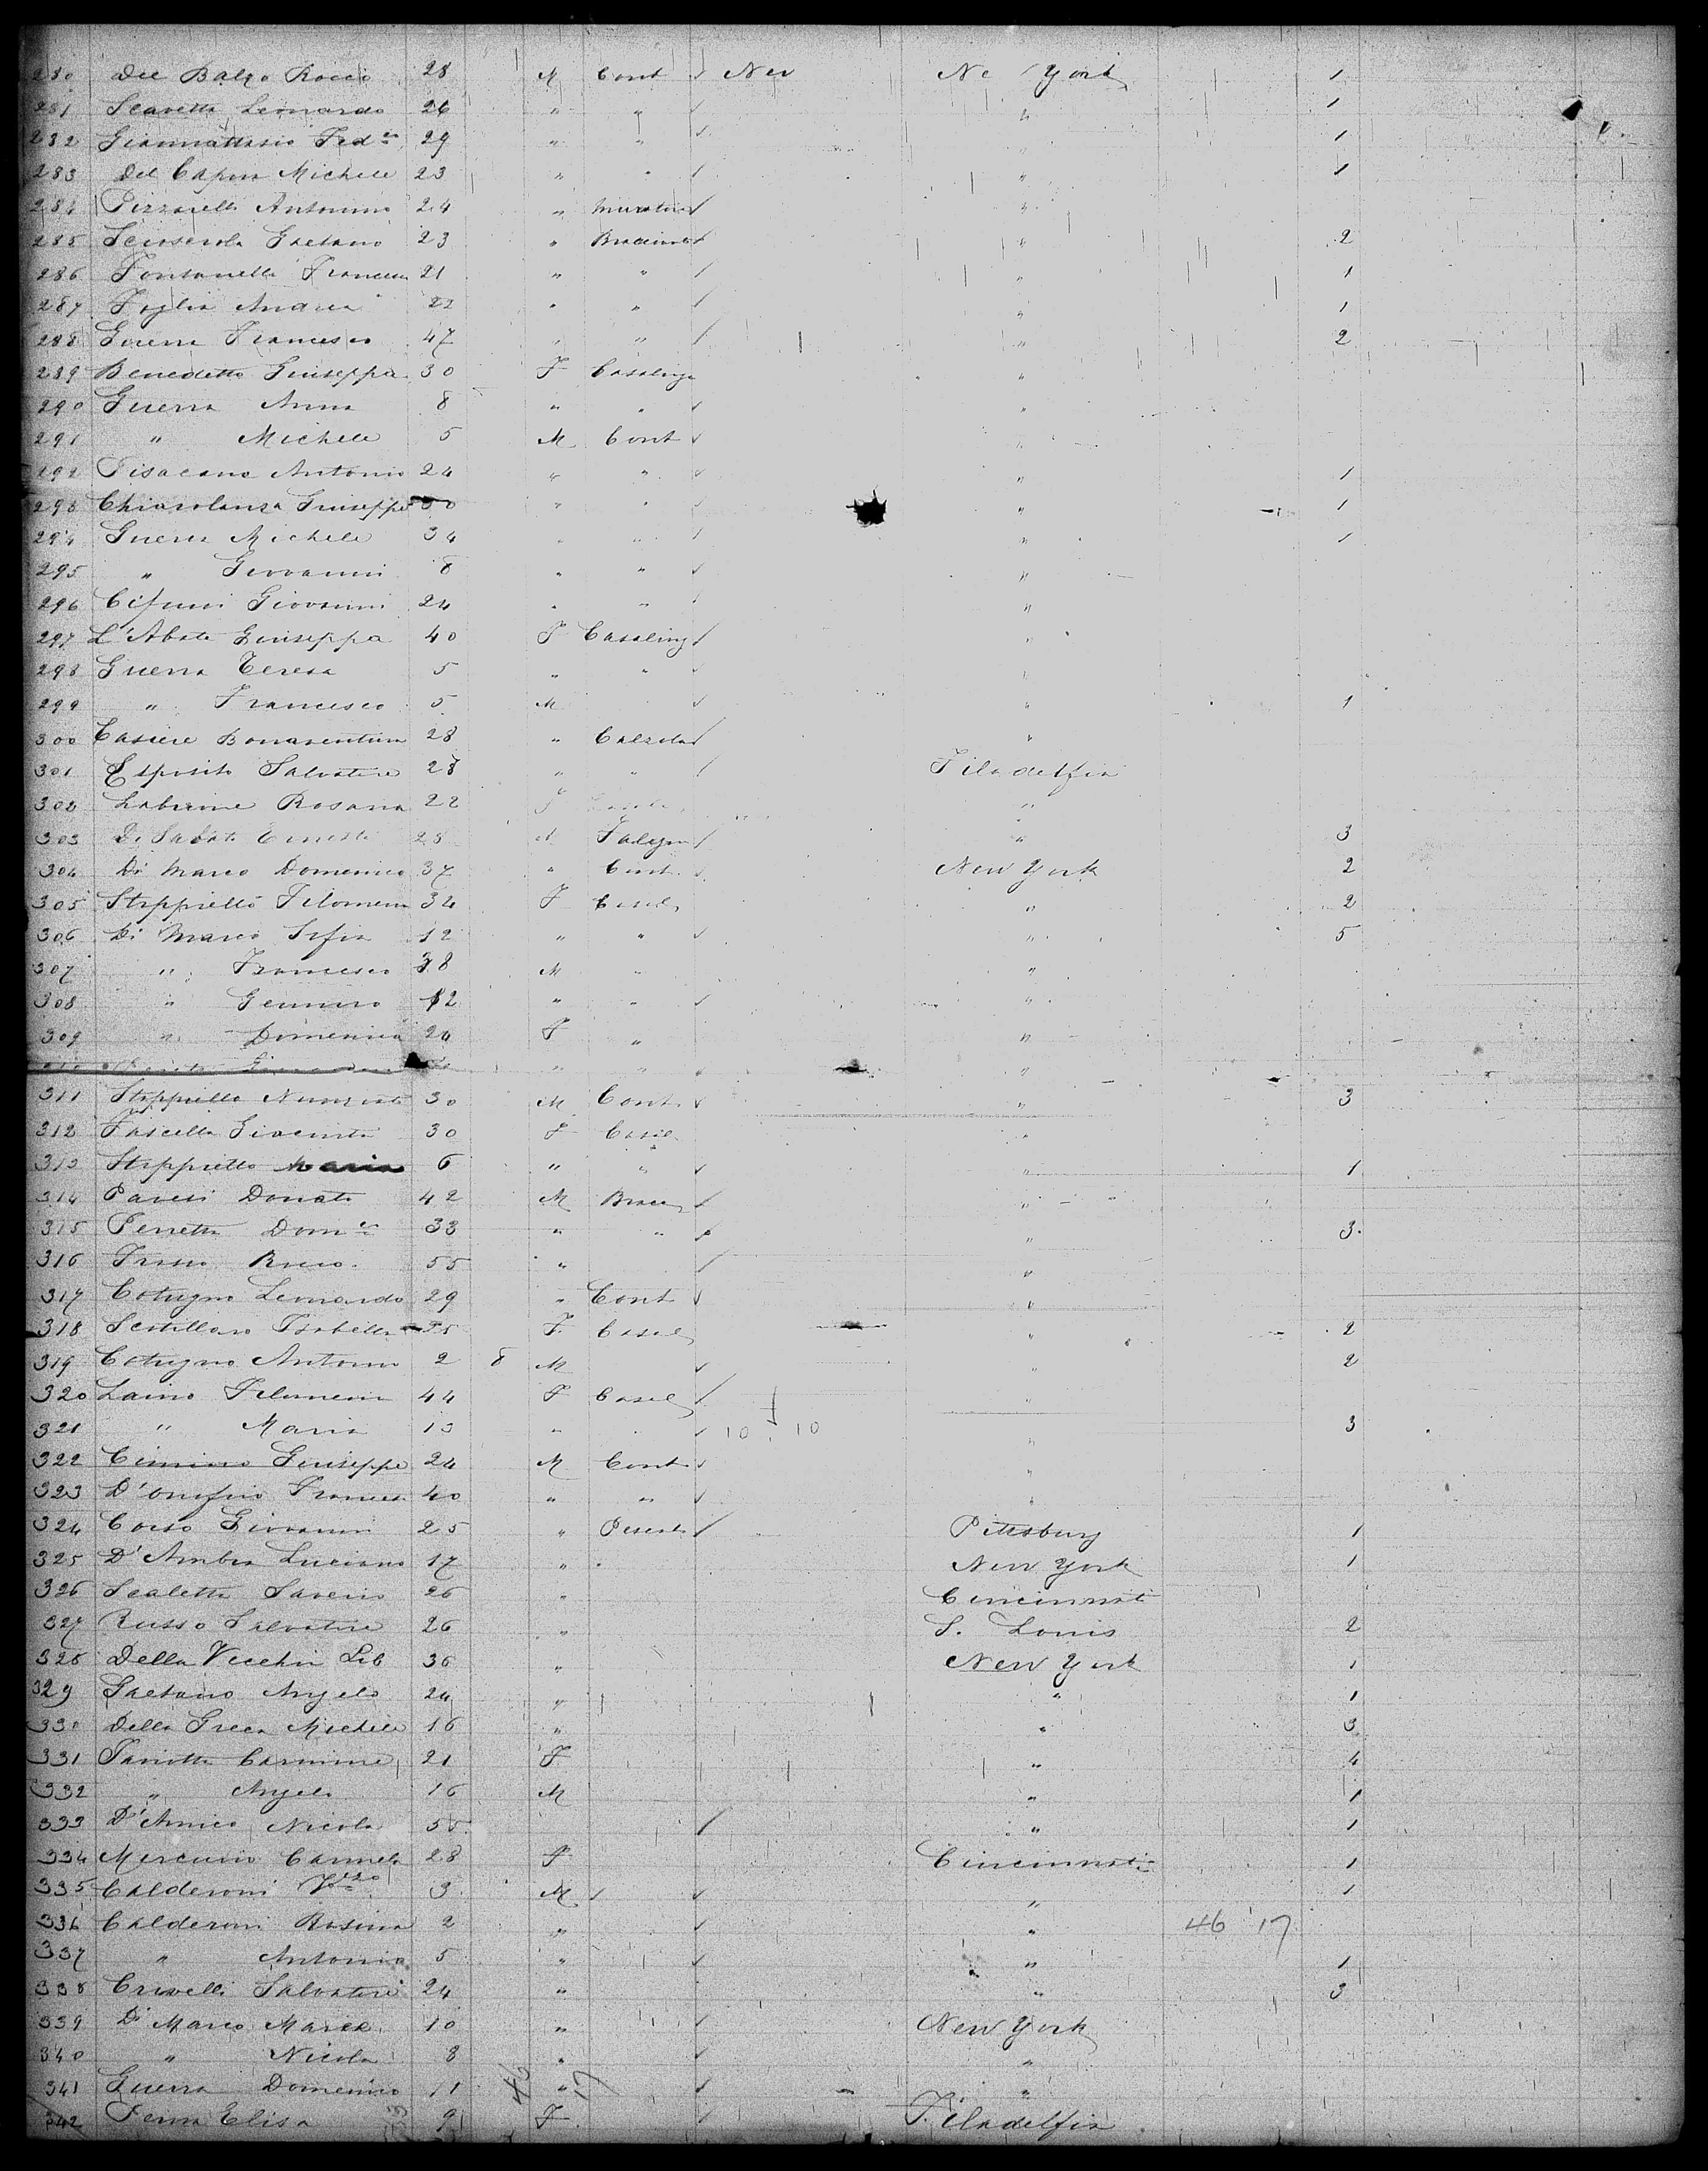 280 Del Balzo Rocco 28 M Cont Nev Ne York 1
281 Scavetta Leonardo 26 " " " 1
282 Giannattasio Fed.co 29 " " " 1
283 Del Capon Michele 23 " " " 1
284 Pizzarelli Antonino 24 " Murator "
285 Gaetano 23 " " 2
286 Fontanella Francesco 21 " " " 1
287 Foglia Andrea 22 " " " 1
288 Guerra Francesco 47 " " " 2
289 Benedetto Giuseppa 30 F Casalinga "
290 Guerra Anna 8 " " "
291 " Michele 5 M Cont "
292 Pisacano Antonio 24 " " " 1
293 Chiarolanza Giuseppe 30 " " " 1
294 Guerra Michele 34 " " " 1
295 " Giovanni 8 " " "
296 Cifuni Giovanni 24 " " "
297 L'Abate Giuseppa 40 F Casaling "
298 Guerra Teresa 5 " " "
299 " Francesco 5 M " 1
300 Casiere Bonaventura 28 " Calzola "
301 Esposito Salvatore 28 " " Filadelfia
302 Rosaria 22 F "
303 Di Sabato Ernesto 28 M Falegn " 3
304 Di Marco Domenico 37 " Cont. New York 2
305 Stoppiello Filomena 34 F Casal " 2
306 Di Marco Sofia 12 " " " 5
307 " Francesco 38 M " "
308 " Gennaro 12 " " "
309 " Domenica 24 F " "
" " "
311 Stoppiello Nunziato 30 M Cont. " 3
312 Fascella Giacinta 30 F Casal. "
313 Stoppiello Maria 6 " " " 1
314 Paresi Donato 42 M Brac "
315 Perretta Dom.co 33 " " " 3.
316 Russo Rocco. 55 " "
317 Cotugno Leonardo 29 " Cont "
318 Scatillaro Isabella 25 F. Casal " 2
319 Cotugno Antonio 2 8 M " 2
320 Laino Filomena 44 F Casal "
321 " Maria 13 " 10 10 " 3
322 Cimino Giuseppe 24 M Cont "
323 D'onofrio Francesco 40 " " "
324 Corso Giovanni 25 " Pittsburg 1
325 D'Ambra Luciano 17 " New York 1
326 Scaletta Saverio 26 " Cincinnati
327 Russo Salvatore 26 " S. Louis 2
328 Della Vecchia Lib 36 " New York 1
329 Gaetano Angelo 24 " " 1
330 Della Greca Michele 16 " " 3
331 Carmine 21 F " 4
332 " Angelo 16 M " 1
333 D'Amico Nicola 55 " 1
334 Mercurio Carmela 28 F Cincinnati 1
335 Calderoni 3 M " 1
336 Calderoni Rosina 2 " " 46 17
337 " Antonio 5 " " 1
338 Crivelli Salvatore 24 " " 3
339 Di Marco Marco 10 " New York
340 " Nicola 8 " "
341 Guerra Domenico 11 46 " 17 "
342 Penna Elisa 9 F Filadelfia